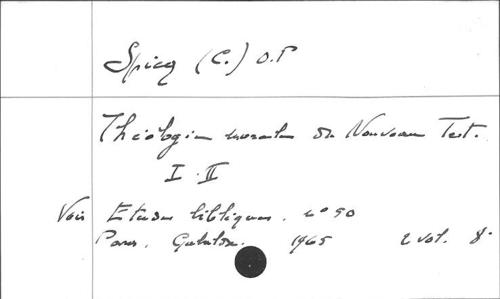 Spicq (C.) O.P
Théologie morale du Nouveau Test.
I. II
Voir Etudes bibliques. n° 50
Paris. Gabalda. 1965 2 vol. 8°